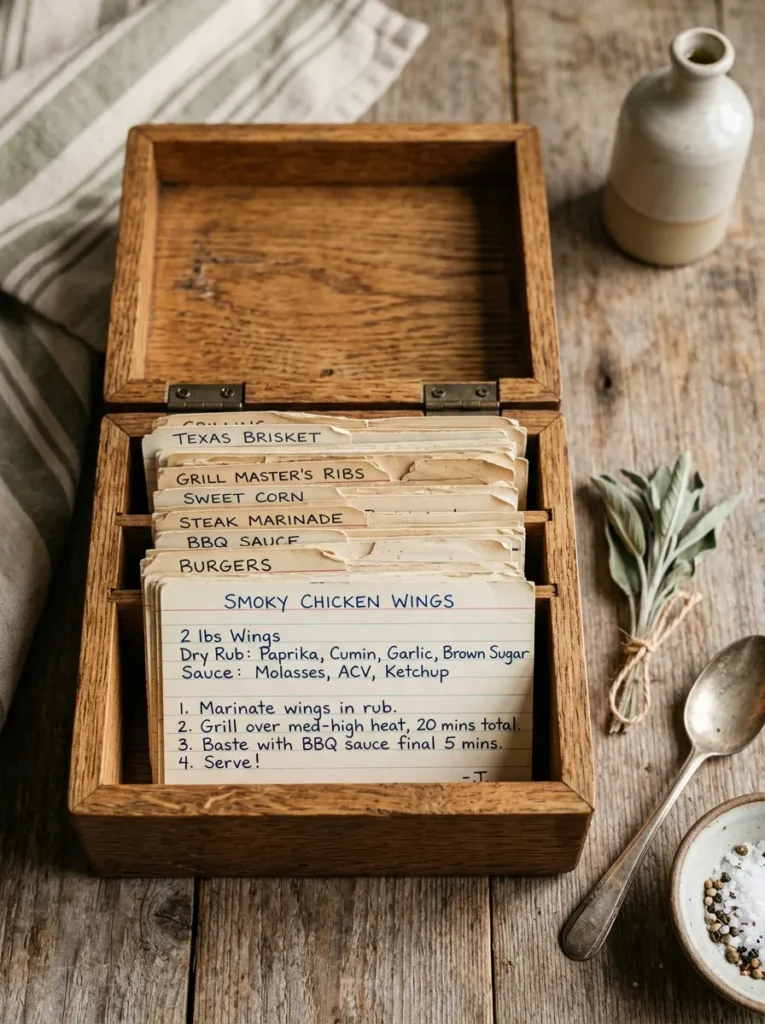 GRILLING
TEXAS BRISKET
GRILL MASTER'S RIBS
SWEET CORN
STEAK MARINADE
BBQ SAUCE
BURGERS
SMOKY CHICKEN WINGS
2 lbs Wings
Dry Rub: Paprika, Cumin, Garlic, Brown Sugar
Sauce: Molasses, ACV, Ketchup
1. Marinate wings in rub.
2. Grill over med-high heat, 20 mins total.
3. Baste with BBQ sauce final 5 mins.
4. Serve!
-J.